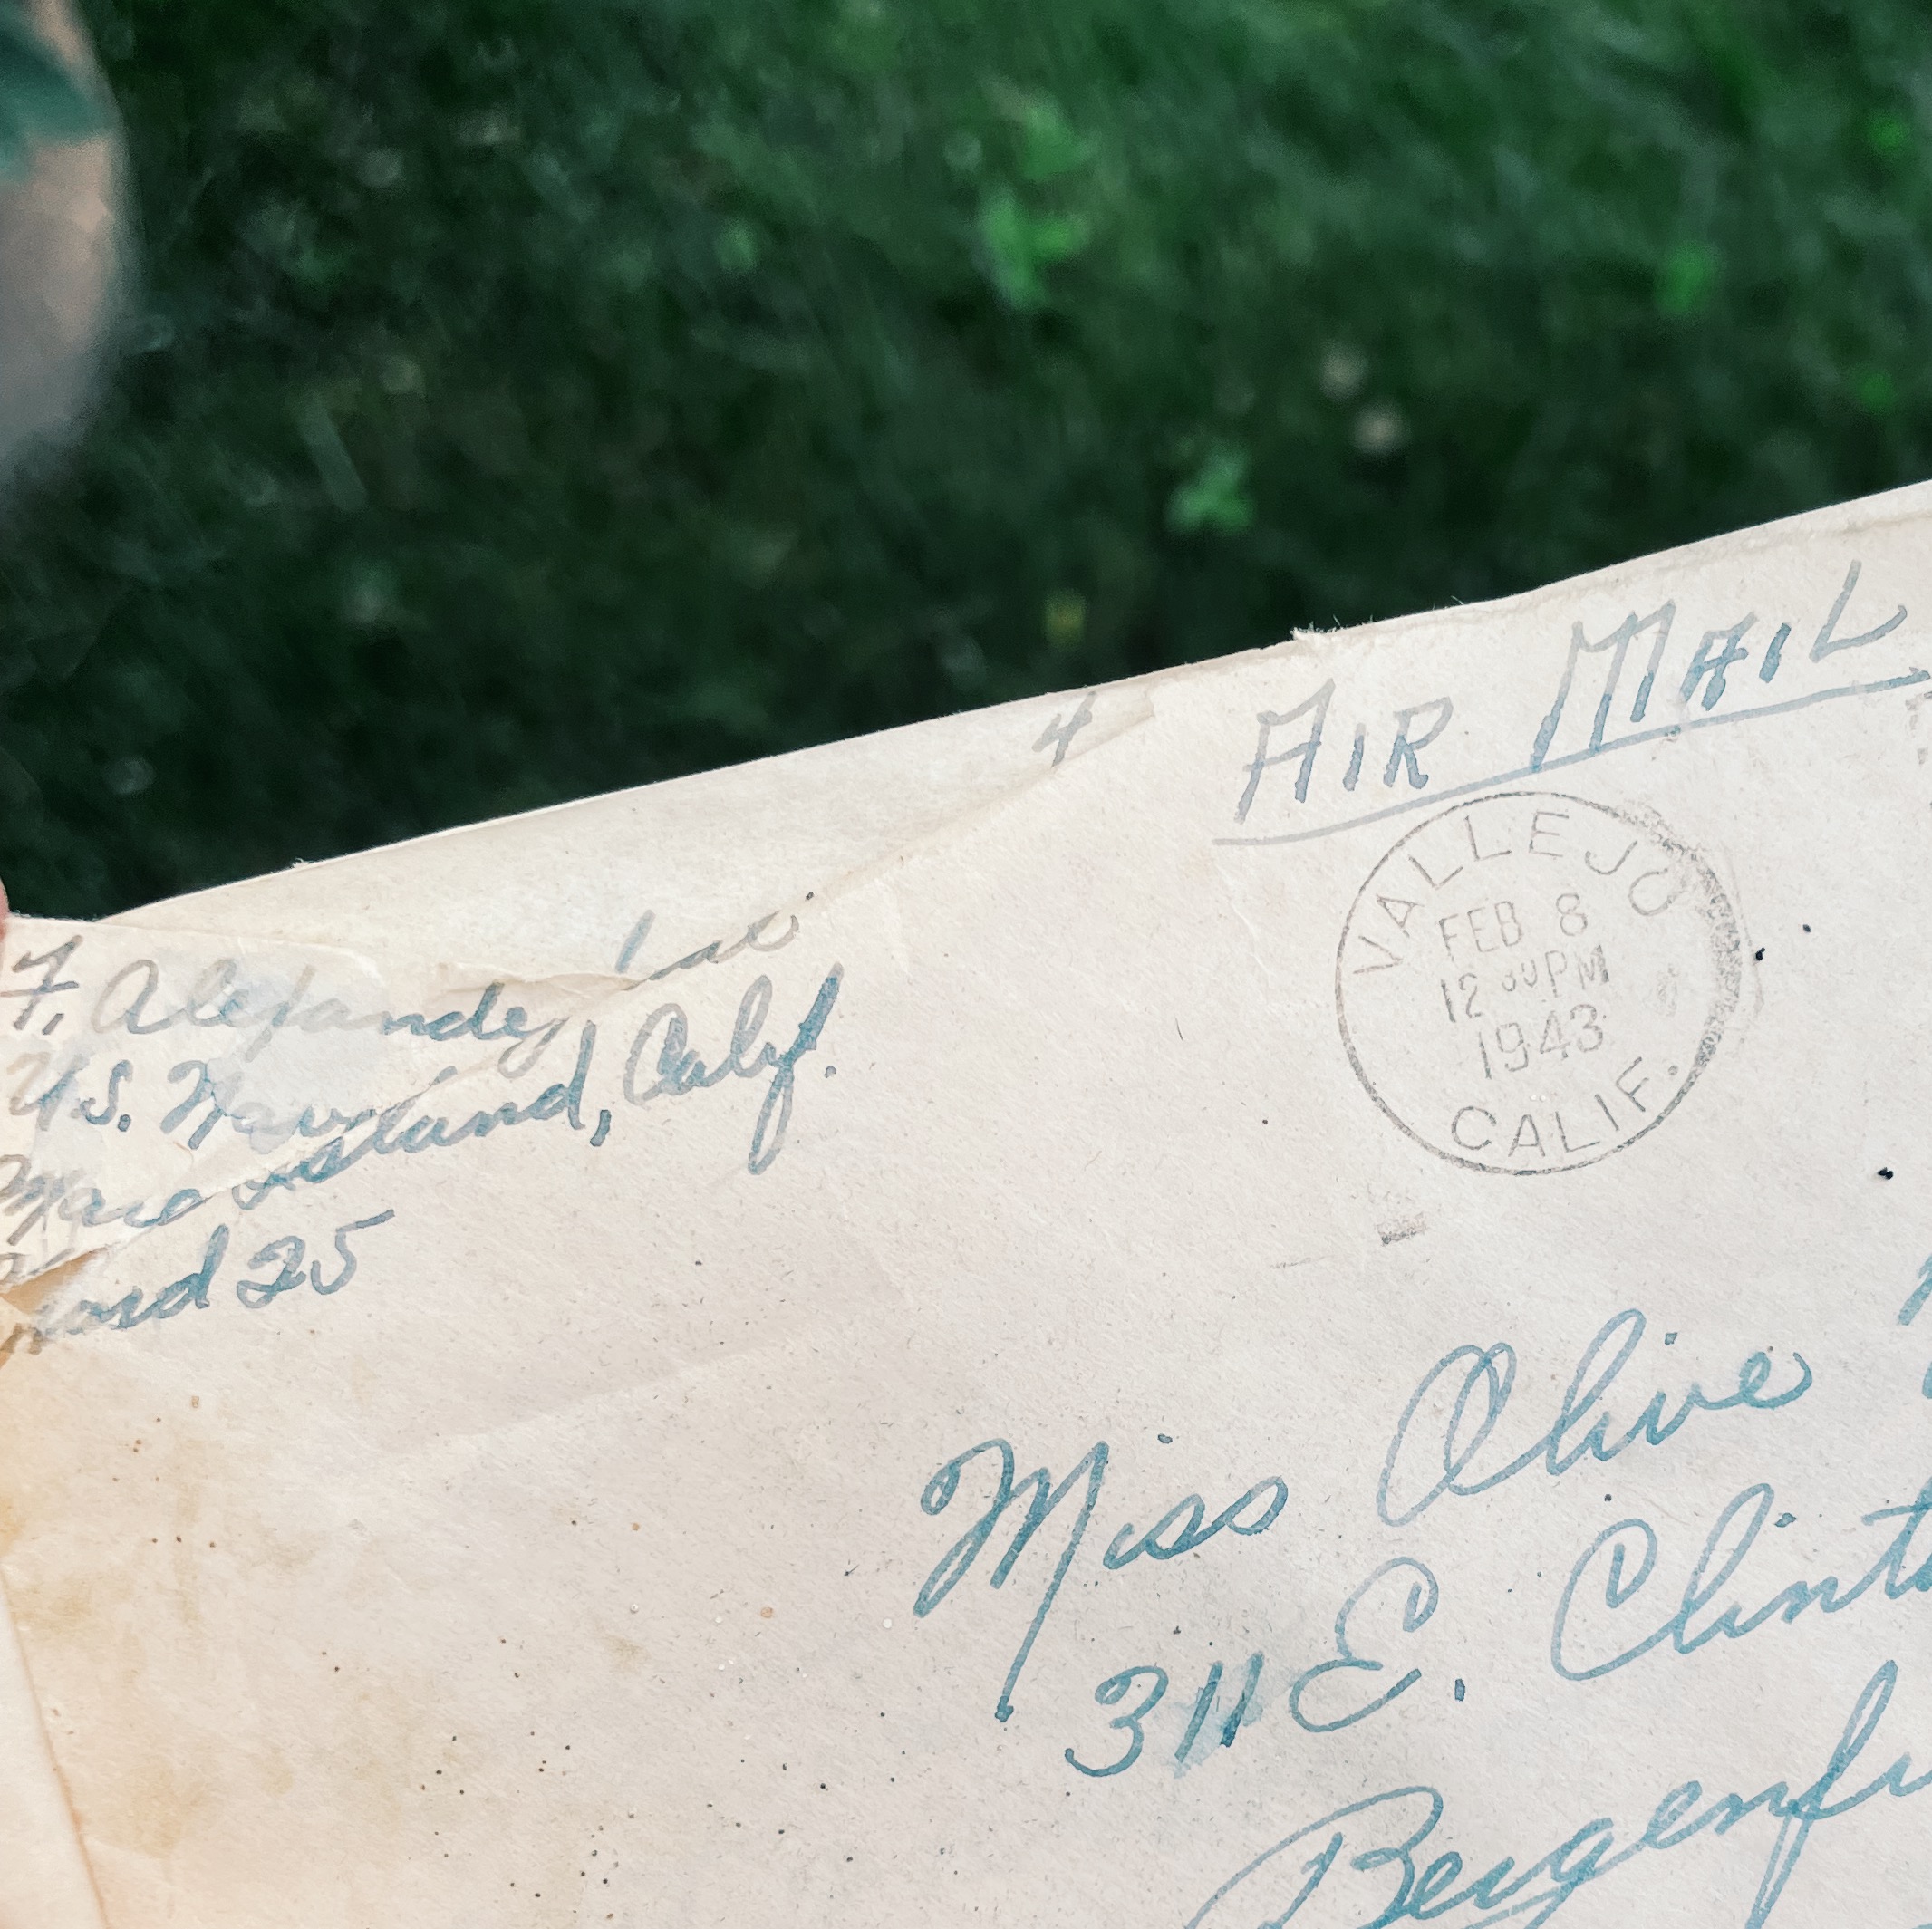 4
AIR MAIL
VALLEJO
FEB 8
12 30 PM
1943
CALIF.
F. Alexander
U.S. Nav
Mare Island, Calif.
Ward 25
Miss Olive
311 E. Clint
Bergenfi